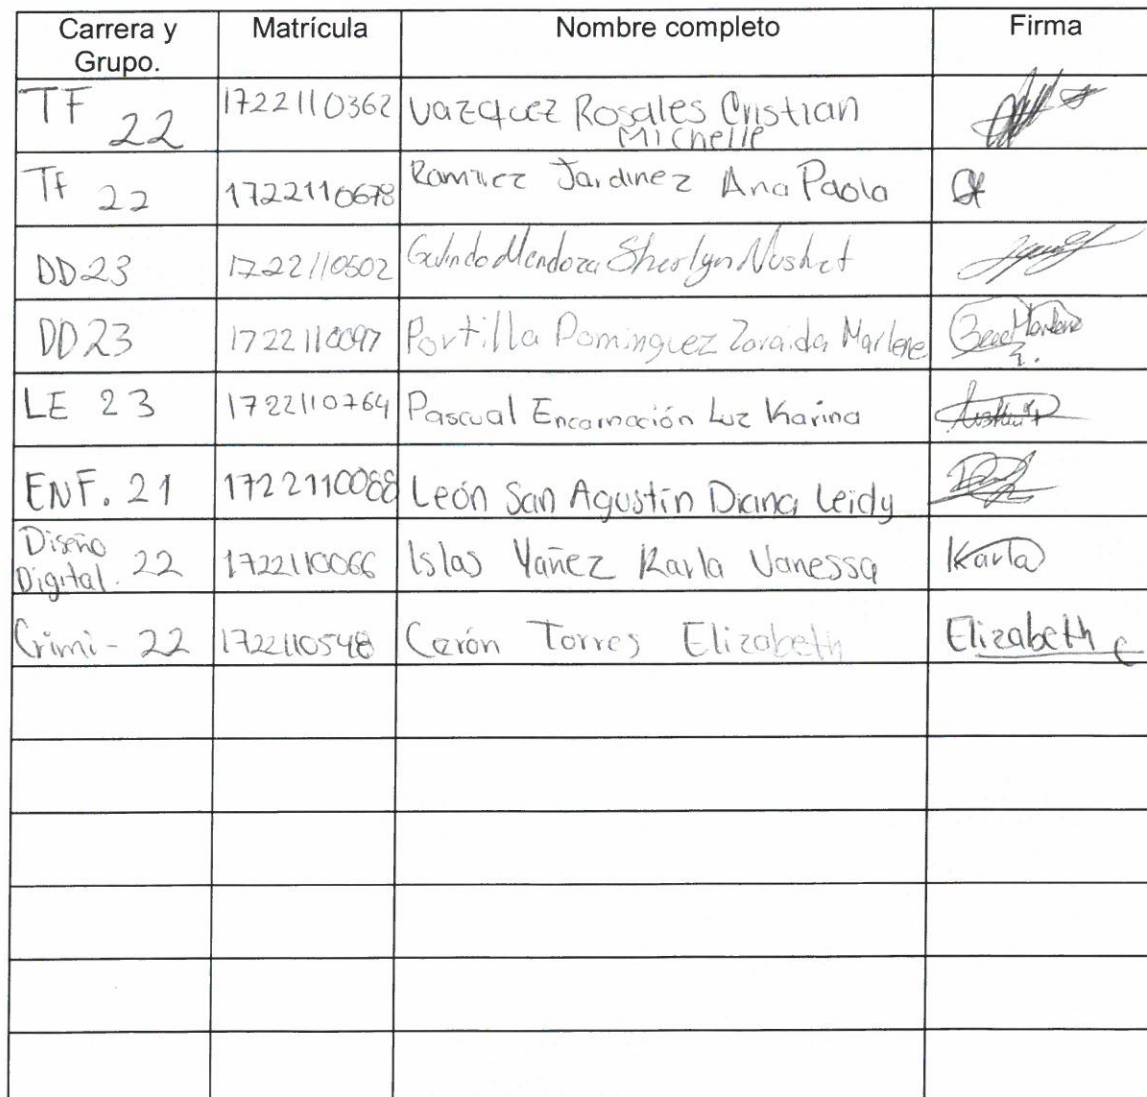 Carrera y Grupo. Matrícula Nombre completo Firma
TF 22 1722110362 Vazquez Rosales Cristian
Michelle
TF 22 1722110678 Ramirez Jardinez Ana Paola
DD23 1722110502 Galindo Mendoza Sherlyn
DD23 1722110097 Portilla Dominguez Zoraida Marlene
LE 23 1722110764 Pascual Encarnación Luz Karina
ENF. 21 1722110088 León San Agustín Diana Leidy
Diseño
Digital. 22 1722110066 Islas Yañez Karla Vanessa Karla
Crimi - 22 1722110548 Cerón Torres Elizabeth Elizabeth C